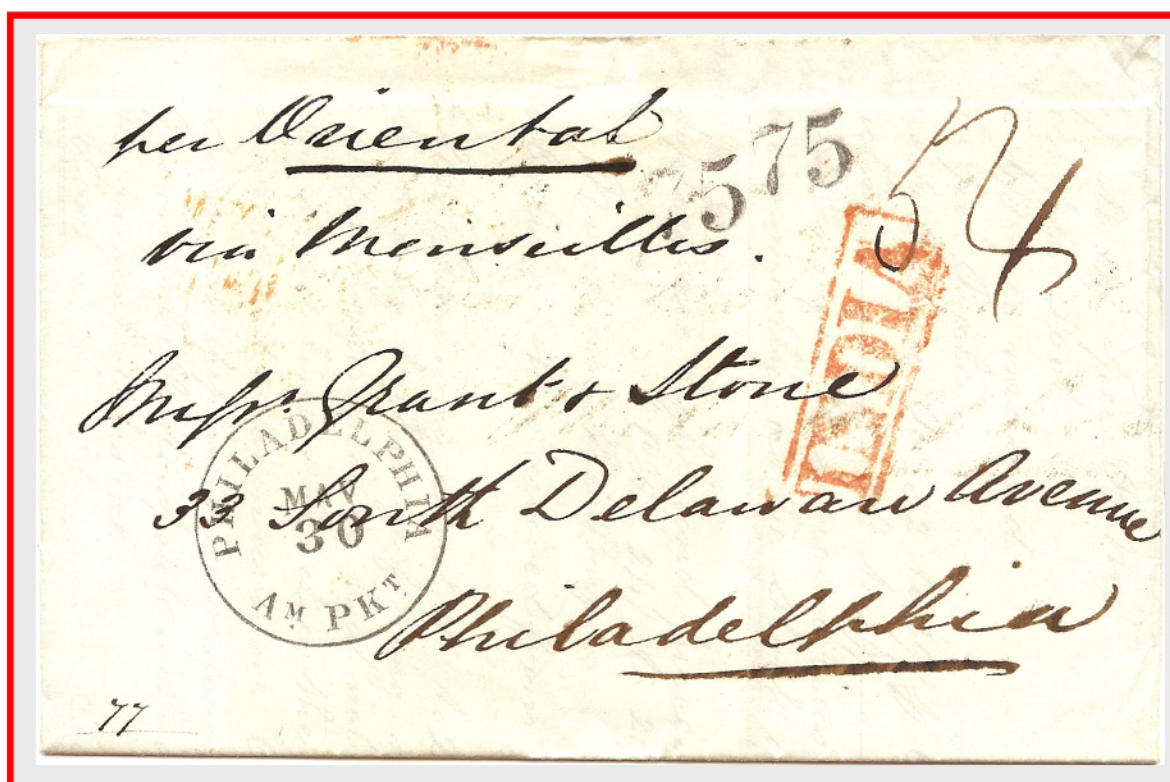 per Oriental
75 75
54
via Marseilles.
INDIA
Messrs. Grant & Stone
33 South Delaware Avenue
Philadelphia
PHILADELPHIA
MAY
30
AM PKT
77